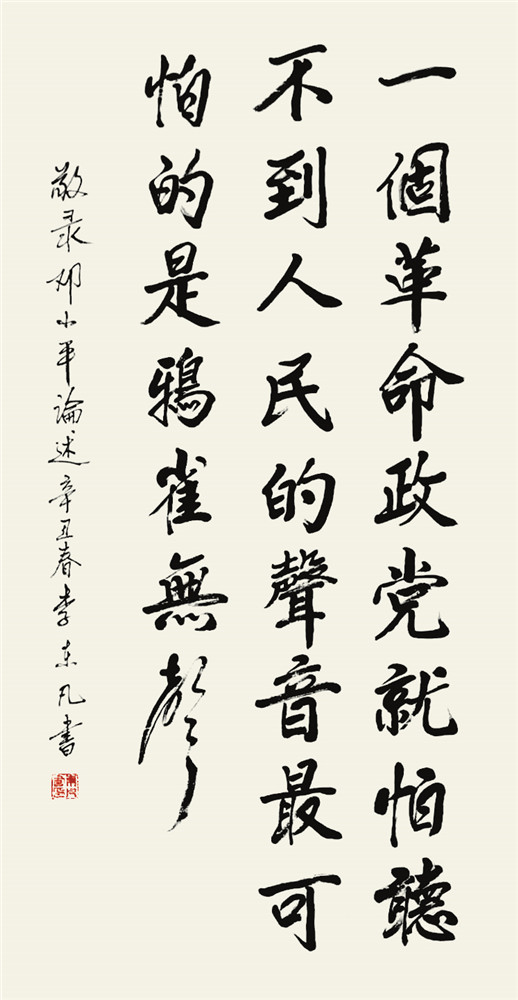 一個革命政党就怕聽
不到人民的聲音最可
怕的是鴉雀無聲
敬录邓小平論述辛丑春李东凡書